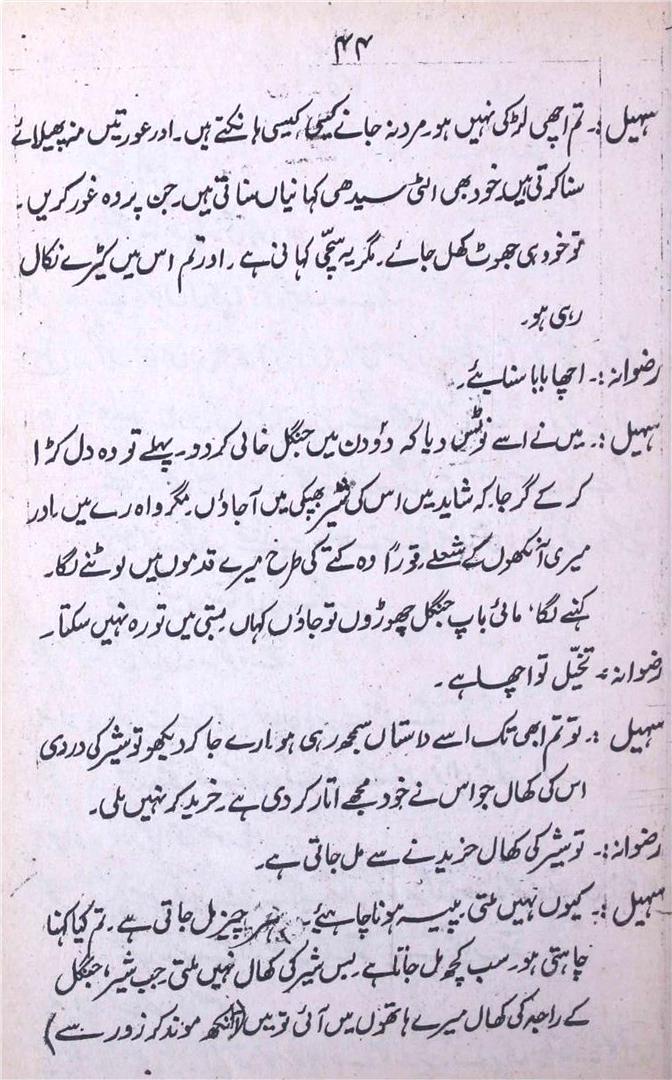 ۴۴
سہیل :۔ تم اچھی لڑکی نہیں ہو۔ مرد نہ جانے کیسی کیسی ہانکتے ہیں۔ اور عورتیں منہ پھیلائے
سنا کرتی ہیں۔ خود بھی الٹی سیدھی کہانیاں سناتی ہیں۔ جن پر وہ غور کریں۔
تو خود ہی جھوٹ کھل جائے۔ مگر یہ سچّی کہانی ہے۔ اور تم اس میں کیڑے نکال
رہی ہو۔
رضوانہ :۔ اچھا بابا سنایئے۔
سہیل :۔ میں نے اسے نوٹس دیا کہ دو دن میں جنگل خالی کر دو۔ پہلے تو وہ دل کڑا
کر کے گرجا کہ شاید میں اس کی شیر بھبکی میں آجاؤں۔ مگر واہ رے میں۔ اور
میری آنکھوں کے شعلے۔ فوراً وہ کتے کی طرح میرے قدموں میں لوٹنے لگا۔
کہنے لگا، مائی باپ جنگل چھوڑوں تو جاؤں کہاں۔ بستی میں تو رہ نہیں سکتا۔
رضوانہ :۔ تخیّل تو اچھا ہے۔
سہیل :۔ تو تم ابھی تک اسے داستاں سمجھ رہی ہو۔ ارے جا کر دیکھو تو شیر کی وردی
اس کی کھال جو اس نے خود مجھے اتار کر دی ہے۔ خرید کر نہیں ملی۔
رضوانہ :۔ تو شیر کی کھال خریدنے سے مل جاتی ہے۔
سہیل :۔ کیوں نہیں ملتی۔ پیسہ ہونا چاہئے۔ ہر چیز مل جاتی ہے۔ تم کیا کہنا
چاہتی ہو۔ سب کچھ مل جاتا ہے۔ بس شیر کی کھال نہیں ملتی۔ جب شیر، جنگل
کے راجہ کی کھال میرے ہاتھوں میں آئی تو میں (آنکھ موند کر زور سے)